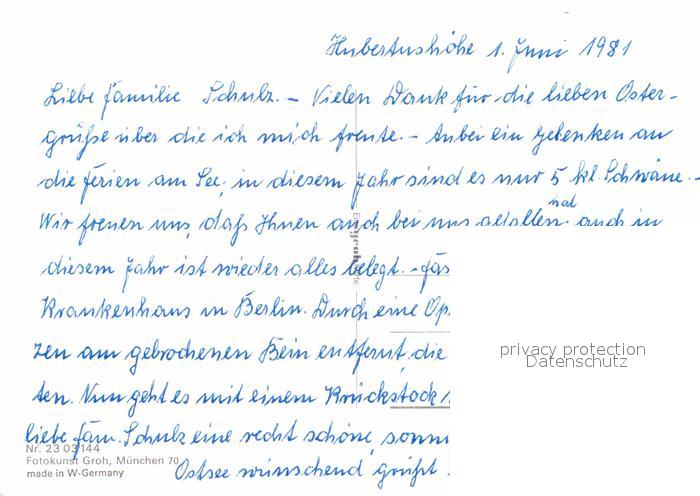 Hubertushöhe 1. Juni 1981
Liebe Familie Schulz. – Vielen Dank für die lieben Oster-
grüße über die ich mich freute. – Anbei ein Gedenken an
die Ferien am See, in diesem Jahr sind es nur 5 kl. Schwäne. –
Wir freuen uns, daß Ihnen auch bei uns gefallen hat auch in
diesem Jahr ist wieder alles belegt. –
Krankenhaus in Berlin. Durch eine Op
zen am gebrochenen Bein entfernt, die
ten. Nun geht es mit einem Krückstock
liebe Fam. Schulz eine recht schöne, sonn
Ostsee wünschend, grüßt
privacy protection
Datenschutz
Nr. 23 03/144
Fotokunst Groh, München 70
made in W-Germany